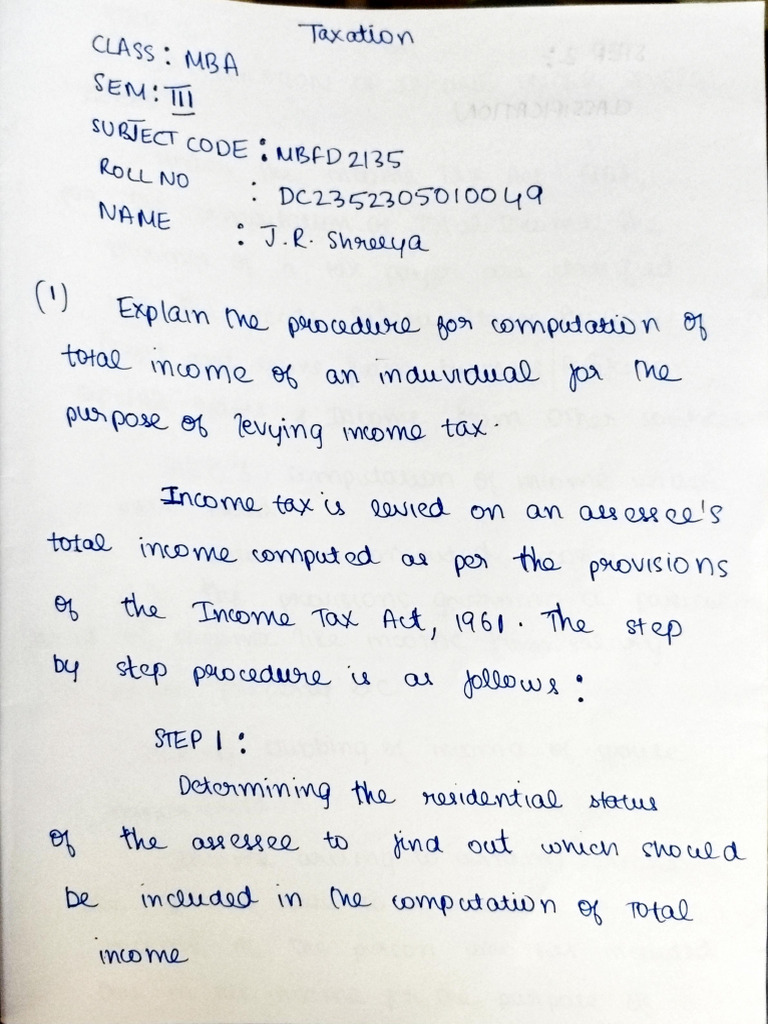 Taxation
CLASS: MBA
SEM: III
SUBJECT CODE: MBFD2135
ROLL NO : DC2352305010049
NAME : J.R. Shreeya
(1) Explain the procedure for computation of
total income of an individual for the
purpose of levying income tax.
Income tax is levied on an assessee's
total income computed as per the provisions
of the Income Tax Act, 1961. The step
by step procedure is as follows:
STEP 1:
Determining the residential status
of the assessee to find out which should
be included in the computation of Total
income